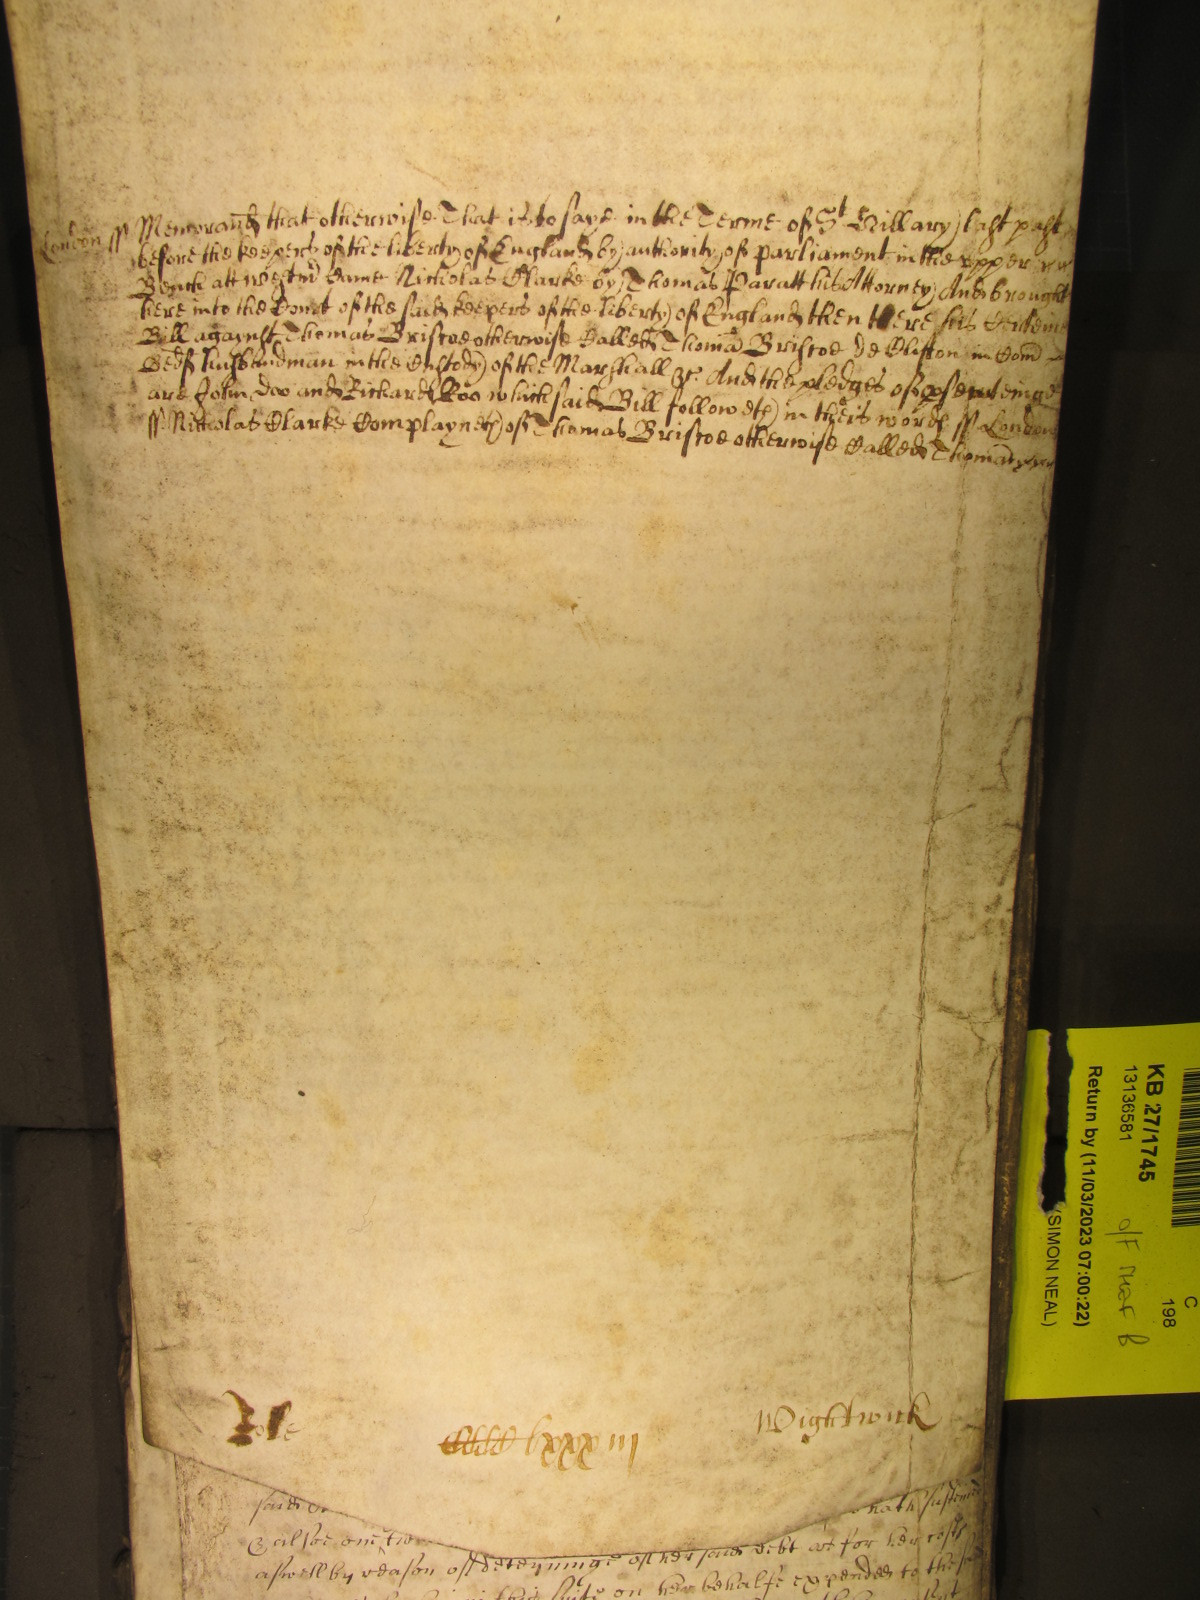 London ss Memorand that otherwise That is to saye in the Terme of St Hillary last past
before the keepers of the liberty of England by authority of parliament in the upper
Bench att Westm Came Nicholas Clarke by Thomas Paratt his Attorney And brought
here into the Court of the said keepers of the liberty of England then there his Certeine
Bill against Thomas Briscoe otherwise Called Thoma Briscoe de Clifton in Com
Bedf husbandman in the Custody of the Marshall &c. And the pledges of psenteinge
are John Doo and Richard Roo which said Bill followeth in theis words ss London
ss Nicholas Clarke Complayneth of Thomas Briscoe otherwise Called Thomam
Rolle
CCCC lxxxiii
Wightwick
said
hath susteined
aswell by reason of deteyninge of her said debt as for her costs
in this suite on her behalfe expended to the
KB 27/1745
13136581
Return by (11/03/2023 07:00:22)
(SIMON NEAL)
C
198
O/F MAP B